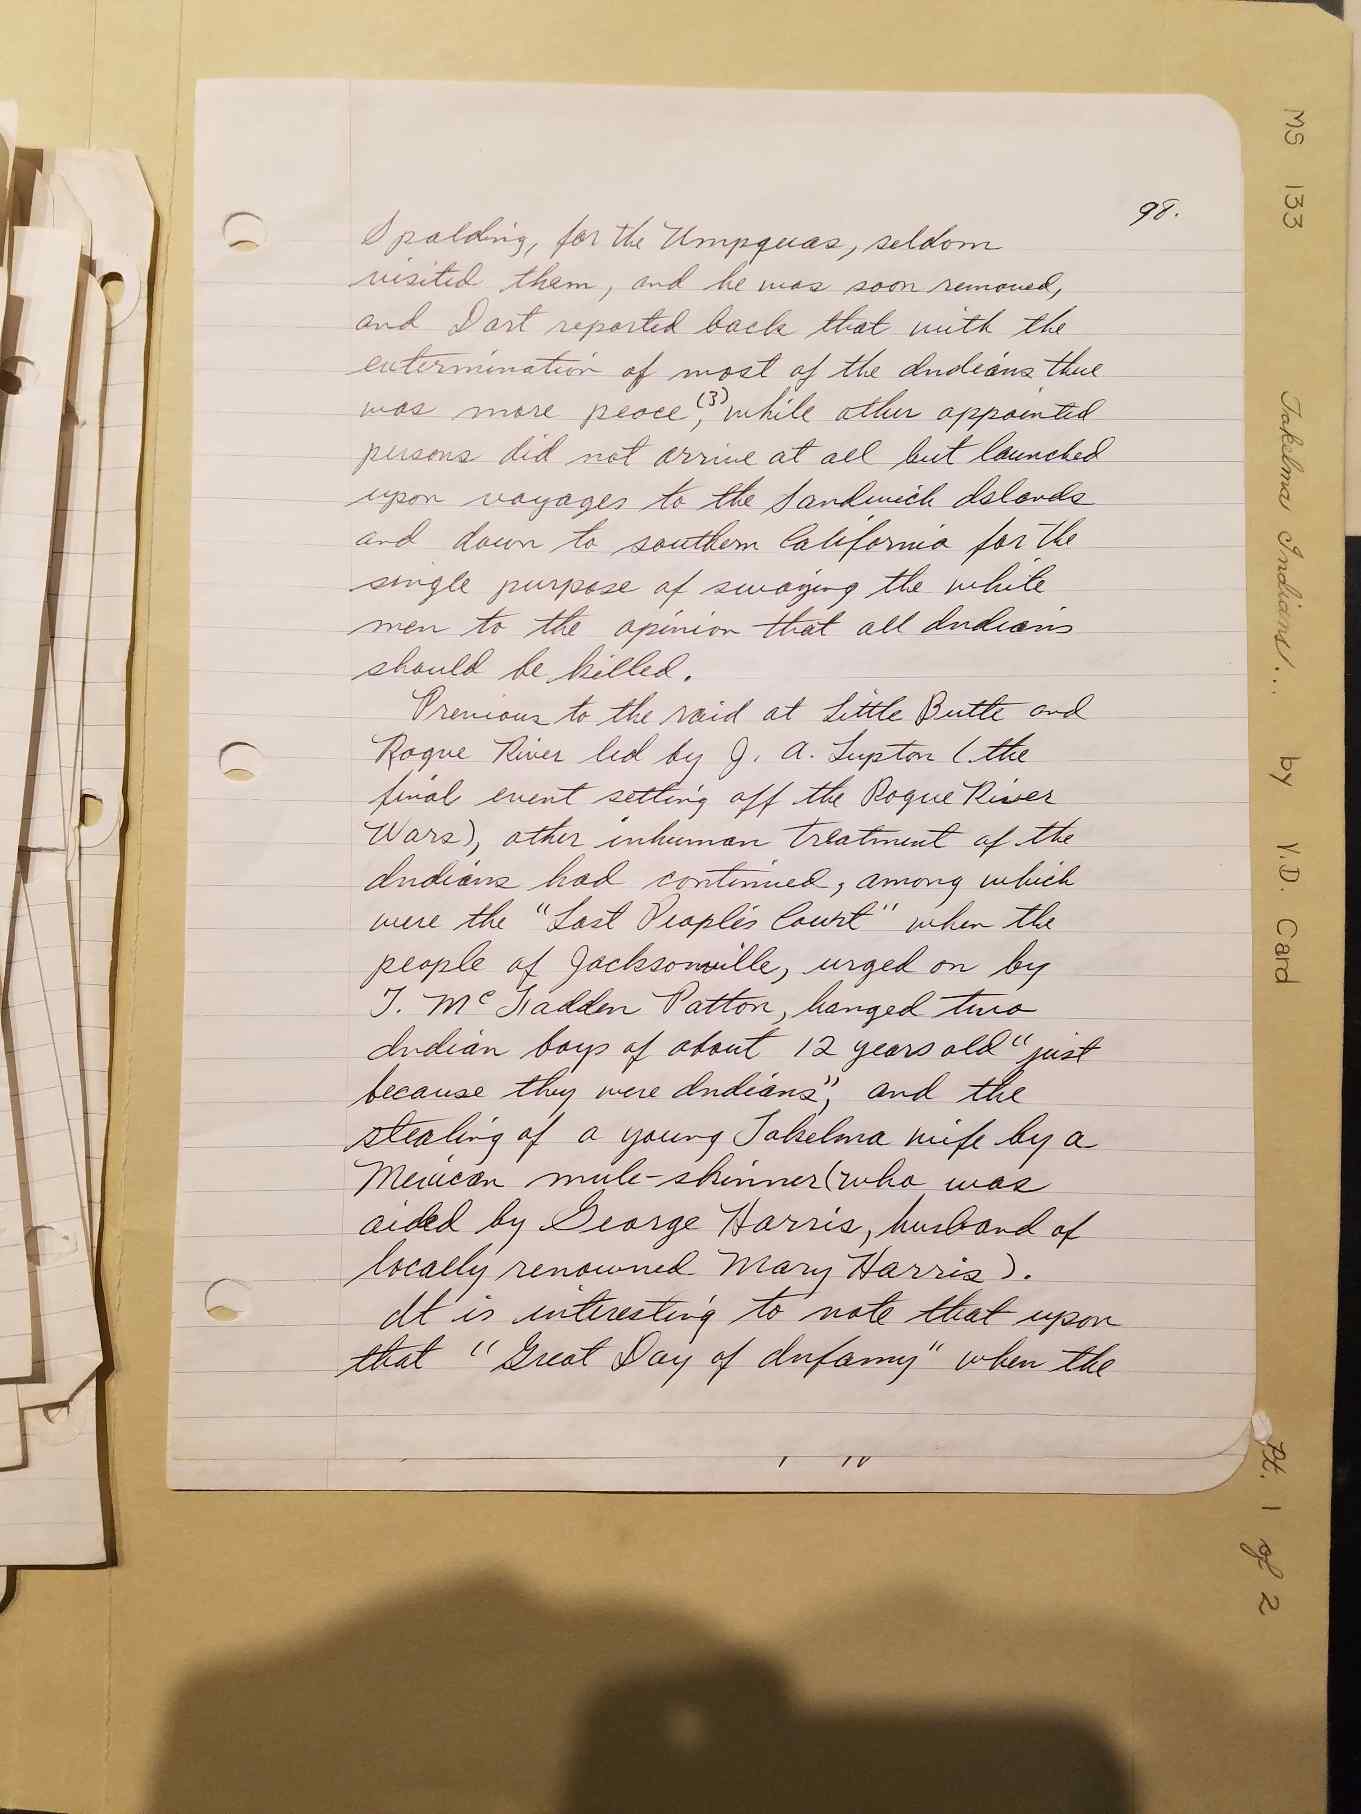 98.
Spalding, for the Umpquas, seldom
visited them, and he was soon removed,
and Dart reported back that with the
extermination of most of the Indians there
was more peace,(3) while other appointed
persons did not arrive at all but launched
upon voyages to the Sandwich Islands
and down to southern California for the
single purpose of swaying the white
men to the opinion that all Indians
should be killed.
Previous to the raid at Little Butte and
Rogue River led by J. A. Lupton (the
final event setting off the Rogue River
Wars), other inhuman treatment of the
Indians had continued, among which
were the "Last People's Court" when the
people of Jacksonville, urged on by
T. McFadden Patton, hanged two
Indian boys of about 12 years old "just
because they were Indians", and the
stealing of a young Takelma wife by a
Mexican mule-skinner (who was
aided by George Harris, husband of
locally renowned Mary Harris).
It is interesting to note that upon
that "Great Day of Infamy" when the
MS 133 Takelma Indians/... by V.D. Card Pt. 1 of 2